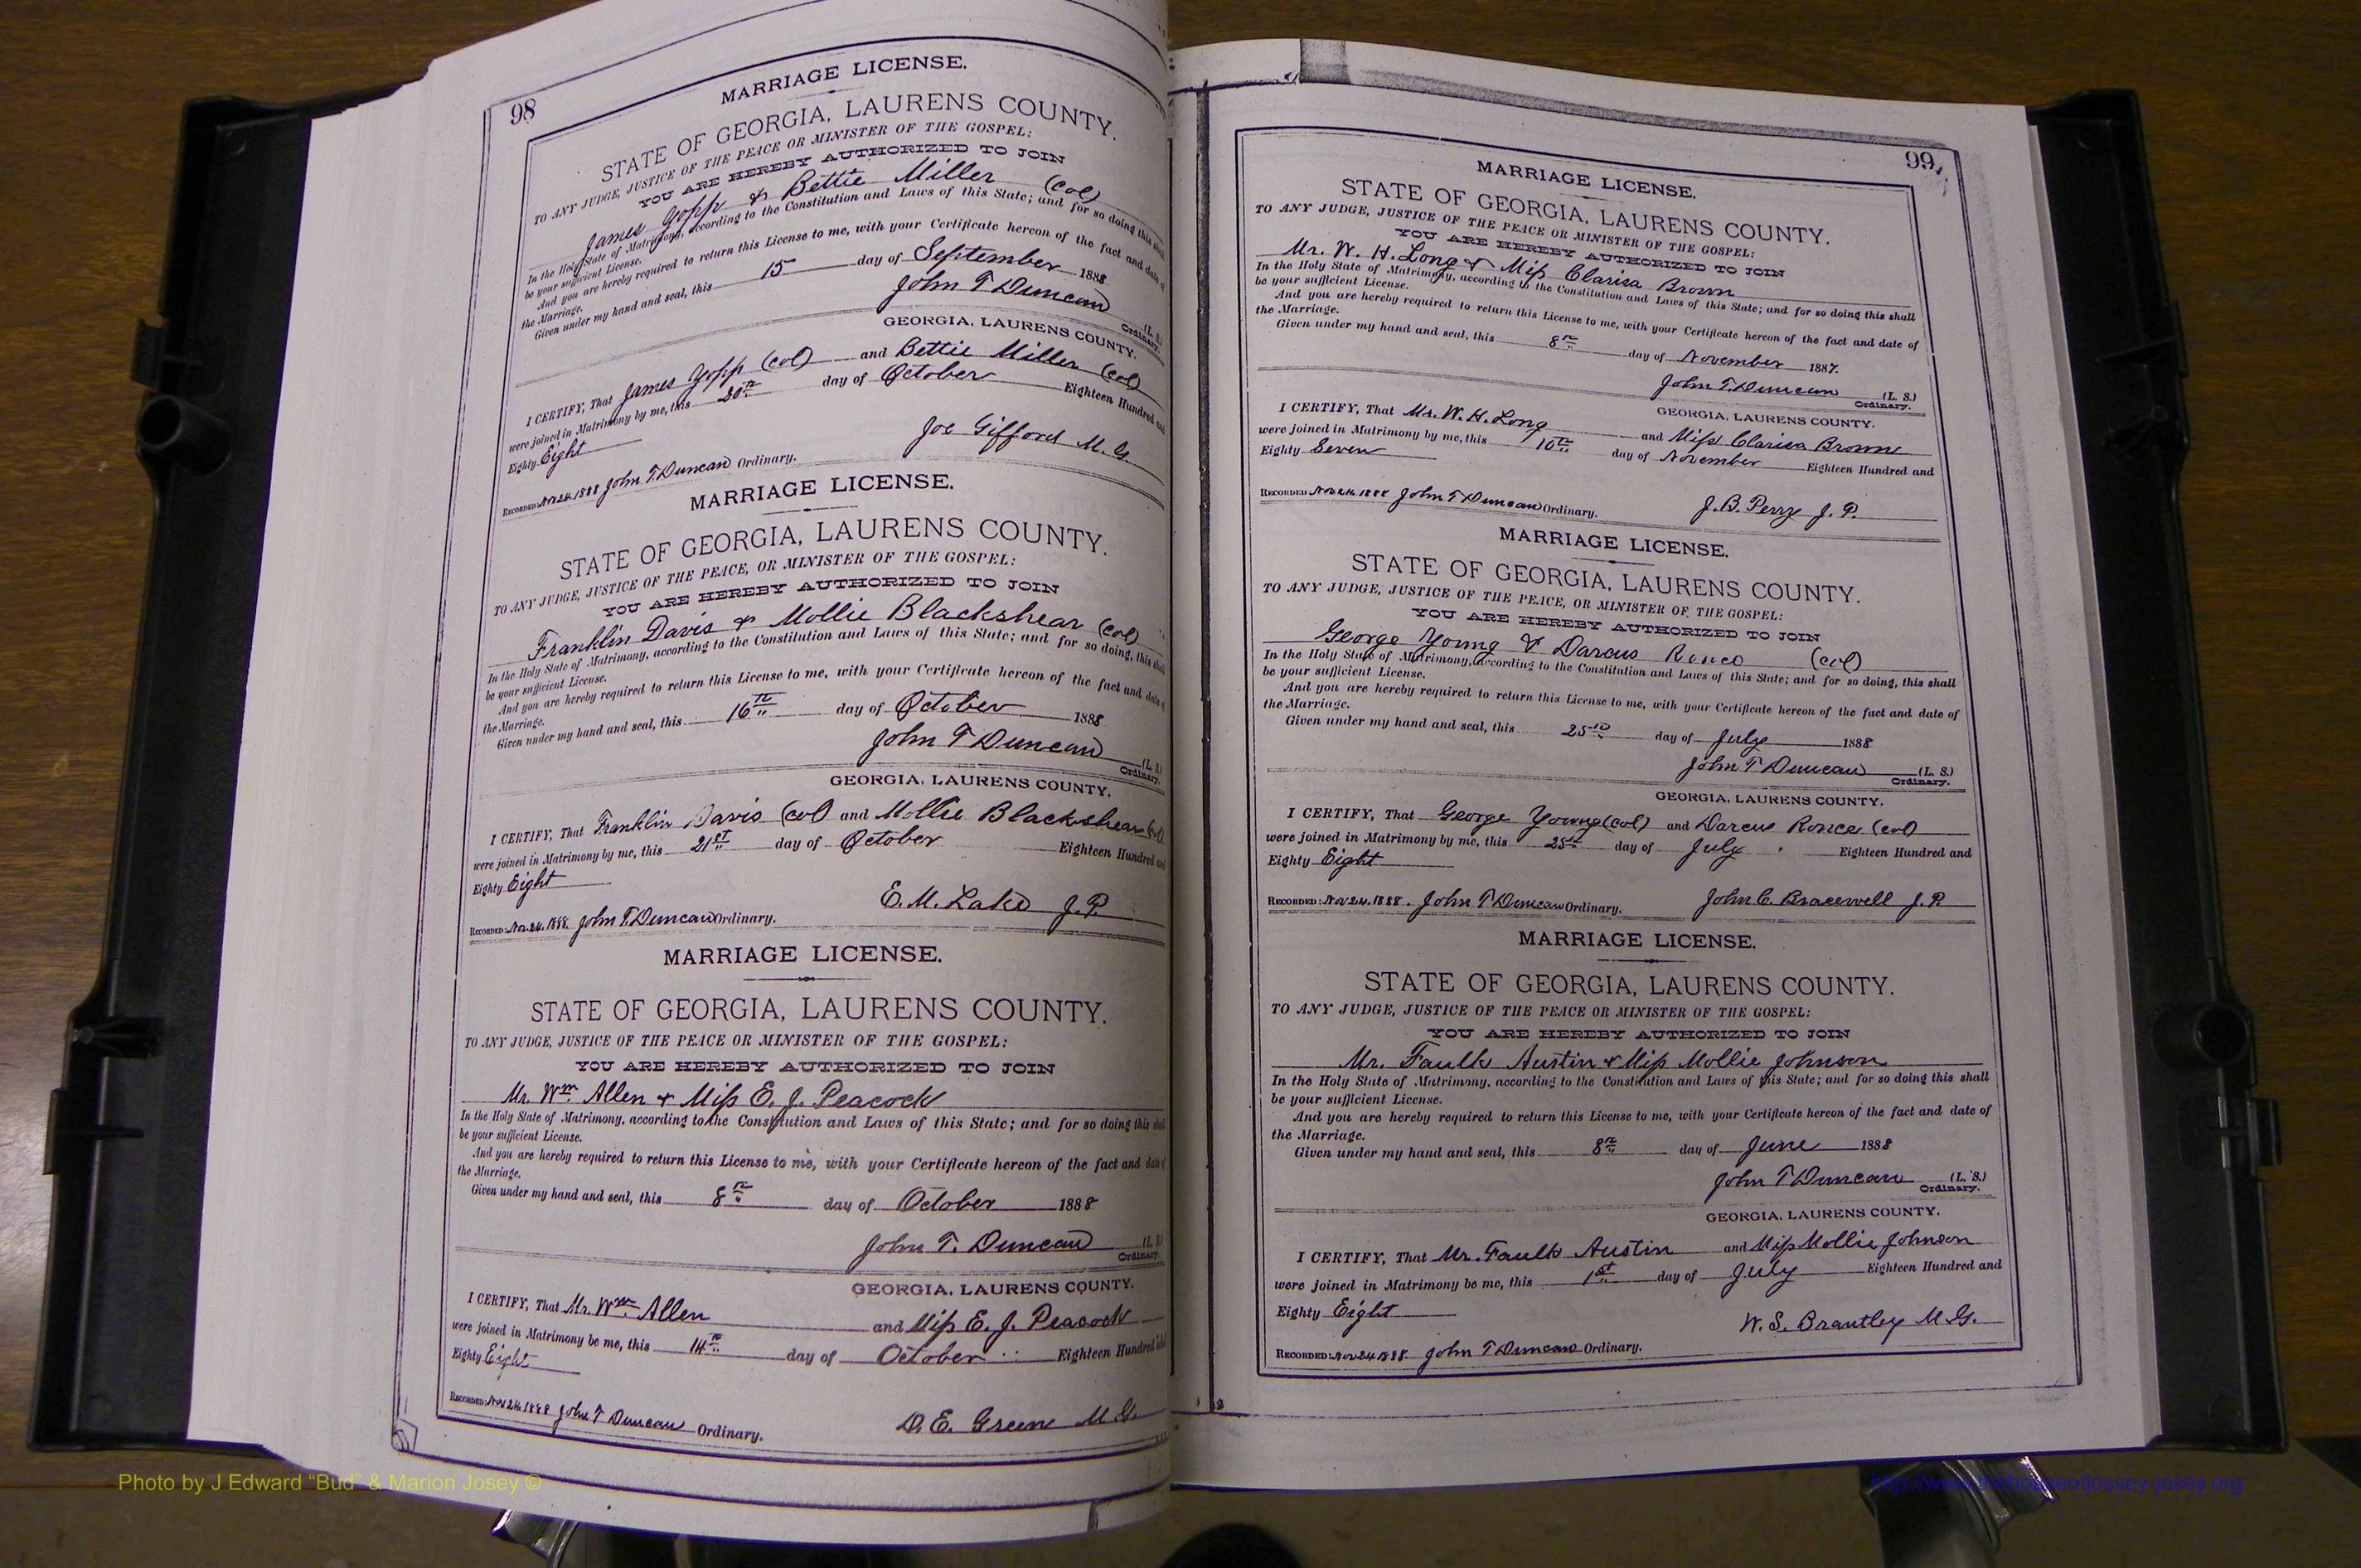 98
MARRIAGE LICENSE.
STATE OF GEORGIA, LAURENS COUNTY.
TO ANY JUDGE, JUSTICE OF THE PEACE OR MINISTER OF THE GOSPEL:
YOU ARE HEREBY AUTHORIZED TO JOIN
James Yopp & Bettie Miller (col)
In the Holy State of Matrimony, according to the Constitution and Laws of this State; and for so doing this shall
be your sufficient License.
And you are hereby required to return this License to me, with your Certificate hereon of the fact and date of
the Marriage.
Given under my hand and seal, this 15 day of September 1888
John T Duncan (L. S.)
Ordinary.
GEORGIA, LAURENS COUNTY.
I CERTIFY, That James Yopp (col) and Bettie Miller (col)
were joined in Matrimony by me, this day of October Eighteen Hundred and
Eighty Eight
Joe Gifford M. G.
RECORDED: Nov 24 1888 John T. Duncan Ordinary.
MARRIAGE LICENSE.
STATE OF GEORGIA, LAURENS COUNTY.
TO ANY JUDGE, JUSTICE OF THE PEACE, OR MINISTER OF THE GOSPEL:
YOU ARE HEREBY AUTHORIZED TO JOIN
Franklin Davis & Mollie Blackshear (col)
In the Holy State of Matrimony, according to the Constitution and Laws of this State; and for so doing, this shall
be your sufficient License.
And you are hereby required to return this License to me, with your Certificate hereon of the fact and date of
the Marriage.
Given under my hand and seal, this 16th day of October 1888
John T Duncan (L. S.)
Ordinary.
GEORGIA, LAURENS COUNTY.
I CERTIFY, That Franklin Davis (col) and Mollie Blackshear (col)
were joined in Matrimony by me, this 21st day of October Eighteen Hundred and
Eighty Eight
E. M. Lake J. P.
RECORDED: Nov. 24, 1888. John T. Duncan Ordinary.
MARRIAGE LICENSE.
STATE OF GEORGIA, LAURENS COUNTY.
TO ANY JUDGE, JUSTICE OF THE PEACE OR MINISTER OF THE GOSPEL:
YOU ARE HEREBY AUTHORIZED TO JOIN
Mr. Wm. Allen & Miss E. J. Peacock
In the Holy State of Matrimony, according to the Constitution and Laws of this State; and for so doing this shall
be your sufficient License.
And you are hereby required to return this License to me, with your Certificate hereon of the fact and date of
the Marriage.
Given under my hand and seal, this 8th day of October 1888
John T. Duncan (L. S.)
Ordinary.
GEORGIA, LAURENS COUNTY.
I CERTIFY, That Mr. Wm. Allen and Miss E. J. Peacock
were joined in Matrimony be me, this 14th day of October Eighteen Hundred and
Eighty Eight
D. E. Green M. G.
RECORDED: Nov 24 1888 John T Duncan Ordinary.
99
MARRIAGE LICENSE.
STATE OF GEORGIA, LAURENS COUNTY.
TO ANY JUDGE, JUSTICE OF THE PEACE OR MINISTER OF THE GOSPEL:
YOU ARE HEREBY AUTHORIZED TO JOIN
Mr. W. H. Long & Miss Clarisa Brown
In the Holy State of Matrimony, according to the Constitution and Laws of this State; and for so doing this shall
be your sufficient License.
And you are hereby required to return this License to me, with your Certificate hereon of the fact and date of
the Marriage.
Given under my hand and seal, this 8th day of November 1887.
John T. Duncan (L. S.)
Ordinary.
GEORGIA, LAURENS COUNTY.
I CERTIFY, That Mr. W. H. Long and Miss Clarisa Brown
were joined in Matrimony by me, this 10th day of November Eighteen Hundred and
Eighty Seven
J. B. Perry J. P.
RECORDED Nov 24 1888 John T Duncan Ordinary.
MARRIAGE LICENSE.
STATE OF GEORGIA, LAURENS COUNTY.
TO ANY JUDGE, JUSTICE OF THE PEACE, OR MINISTER OF THE GOSPEL:
YOU ARE HEREBY AUTHORIZED TO JOIN
George Young & Darcus (col)
In the Holy State of Matrimony, according to the Constitution and Laws of this State; and for so doing, this shall
be your sufficient License.
And you are hereby required to return this License to me, with your Certificate hereon of the fact and date of
the Marriage.
Given under my hand and seal, this day of July 1888
John T Duncan (L. S.)
Ordinary.
GEORGIA, LAURENS COUNTY.
I CERTIFY, That George Young (col) and Darcus (col)
were joined in Matrimony by me, this day of July Eighteen Hundred and
Eighty Eight
John C. Bracewell J. P.
RECORDED: Nov 24, 1888. John T Duncan Ordinary.
MARRIAGE LICENSE.
STATE OF GEORGIA, LAURENS COUNTY.
TO ANY JUDGE, JUSTICE OF THE PEACE OR MINISTER OF THE GOSPEL:
YOU ARE HEREBY AUTHORIZED TO JOIN
Mr. Faulk Austin & Miss Mollie Johnson
In the Holy State of Matrimony, according to the Constitution and Laws of this State; and for so doing this shall
be your sufficient License.
And you are hereby required to return this License to me, with your Certificate hereon of the fact and date of
the Marriage.
Given under my hand and seal, this 8th day of June 1888
John T Duncan (L. S.)
Ordinary.
GEORGIA, LAURENS COUNTY.
I CERTIFY, That Mr. Faulk Austin and Miss Mollie Johnson
were joined in Matrimony be me, this 1st day of July Eighteen Hundred and
Eighty Eight
W. S. Brantley M. G.
RECORDED: Nov 24 1888 John T Duncan Ordinary.
Photo by J Edward “Bud” & Marion Josey ©
http://www.thehouseofjossey-josey.org